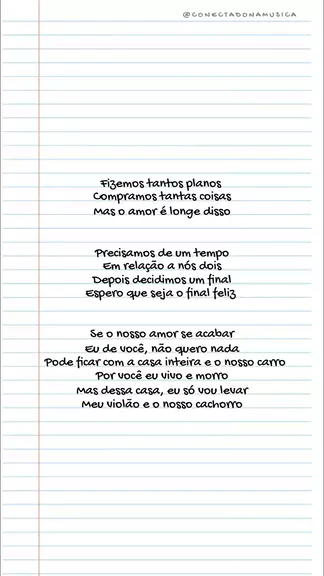 @CONECTADONAMUSICA
Fizemos tantos planos
Compramos tantas coisas
Mas o amor é longe disso
Precisamos de um tempo
Em relação a nós dois
Depois decidimos um final
Espero que seja o final feliz
Se o nosso amor se acabar
Eu de você, não quero nada
Pode ficar com a casa inteira e o nosso carro
Por você eu vivo e morro
Mas dessa casa, eu só vou levar
Meu violão e o nosso cachorro